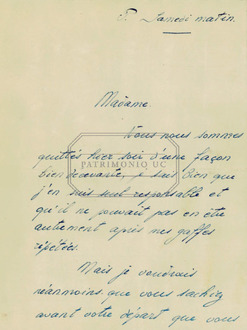 Samedi matin.
Madame.
Nous nous sommes
quittés hier soir d'une façon
bien décevante, je sais bien que
j'en suis seul responsable et
qu'il ne pouvait pas en être
autrement après mes gaffes
répétées.
Mais je voudrais
néanmoins que vous sachiez
avant votre départ que vous
PATRIMONIO UC